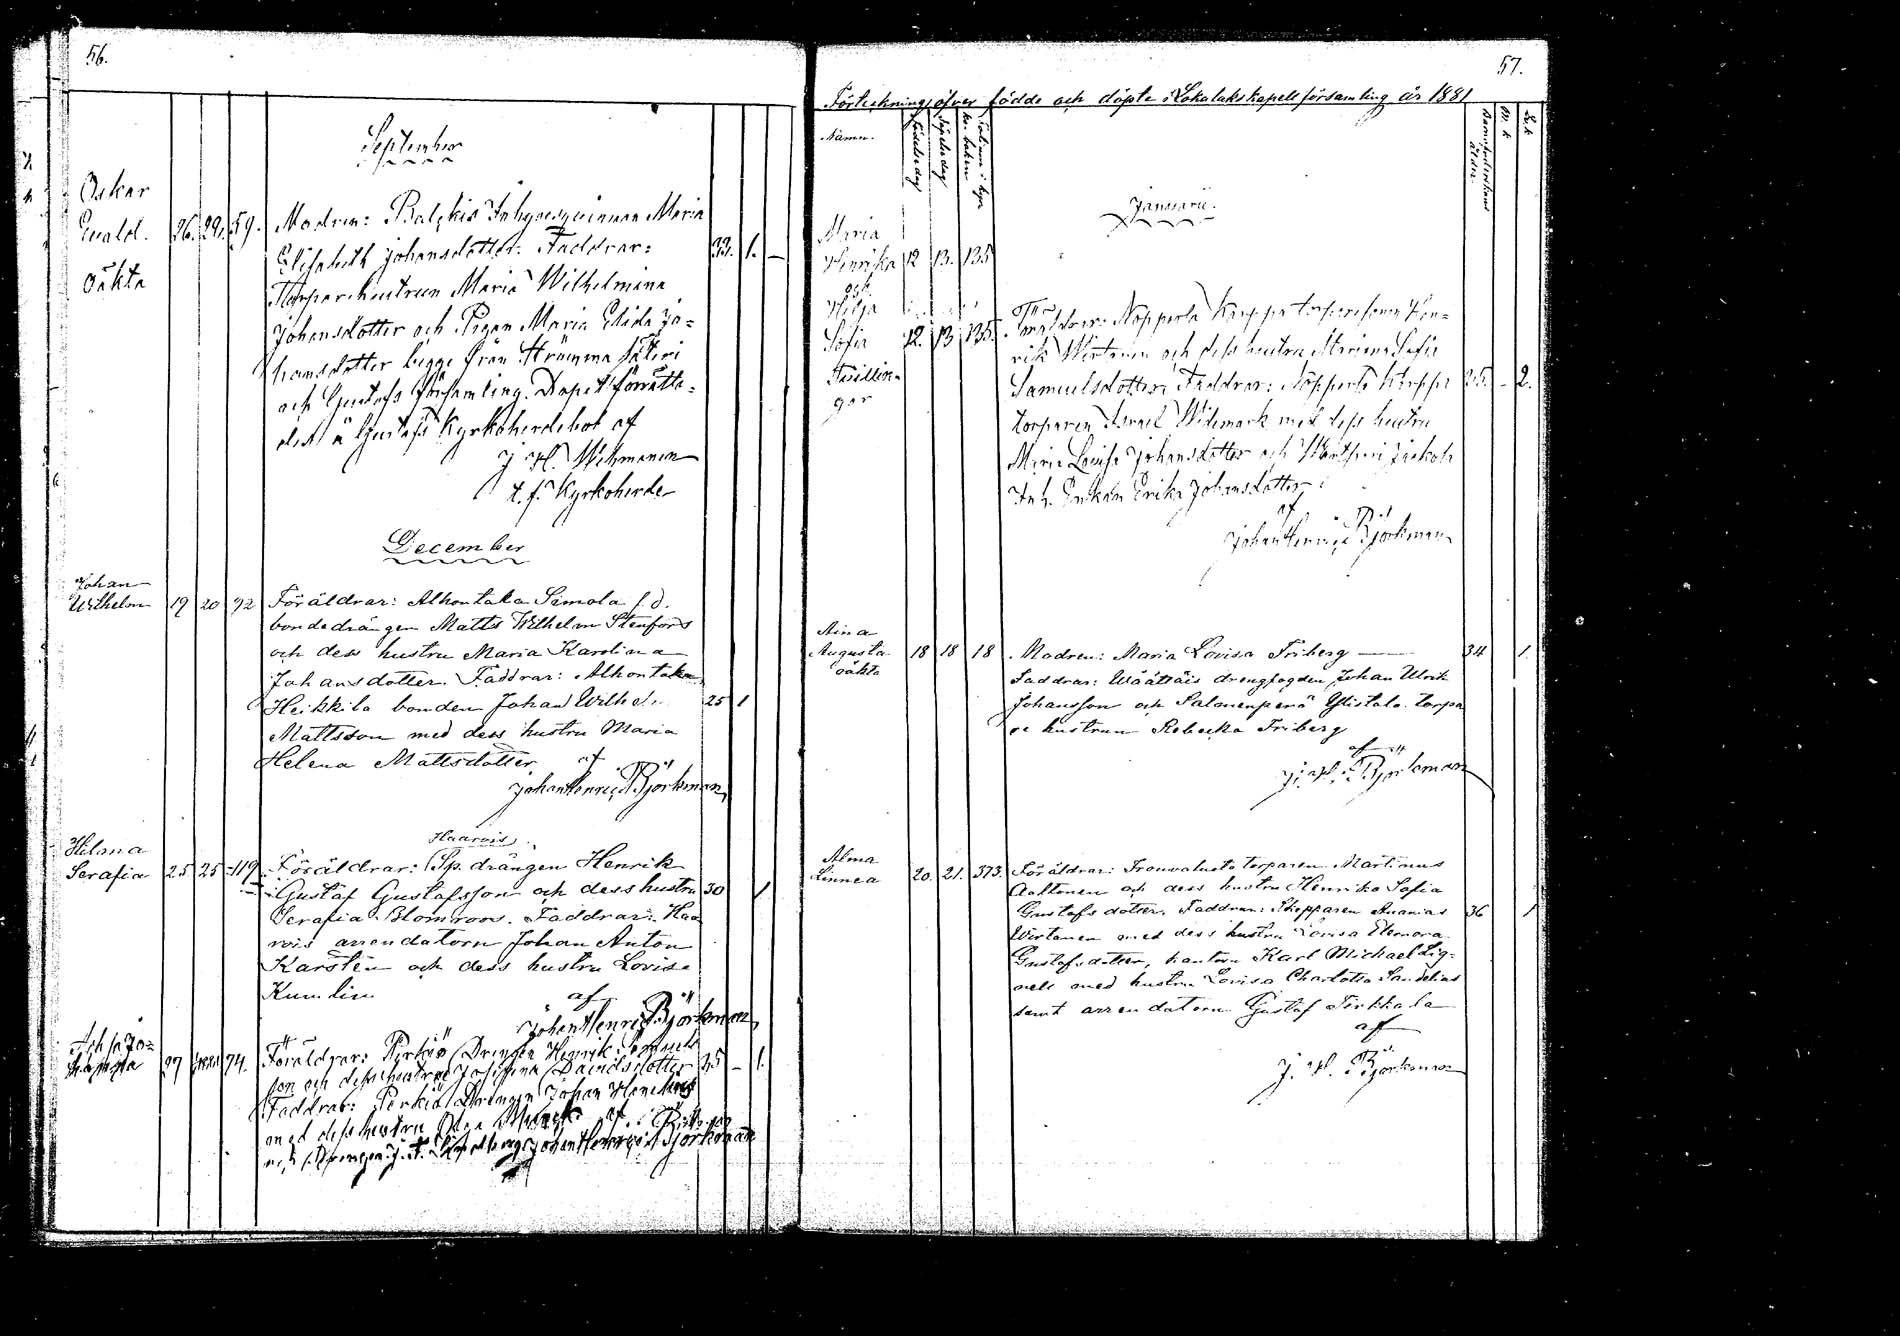 56.
September
Oskar
Ewald. 26. 29. 59. Modren: Inhysesqvinnan Maria
Oäkta
Elisabeth Johansdotter. Faddrar: 33. 1. —
Torparehustrun Maria Wilhelmina
Johansdotter och Pigan Maria Jo=
hansdotter begge från Strömma Säteri
och Gustafs församling. Dopet förätta-
des å Gustafs Kyrkoherdebol af
J. H. Wikmanen
t. f. Kyrkoherde
December
Johan
Wilhelm 19 20 92 Föräldrar: Alhontaka Simola f. d.
bondedrängen Matts Wilhelm Stenfors
och dess hustru Maria Karolina
Johansdotter. Faddrar: Alhontaka
Heikkila bonden Johan Wilhelm 25 1
Mattsson med dess hustru Maria
Helena Mattsdotter
af
Johan Henric Björkman
Haarois
Hilma
Serafia 25 25 119 Föräldrar: Sp. drängen Henrik
Gustaf Gustafsson och dess hustru 30 1
Serafia Blomroos. Faddrar: Haa
rois arrendatorn Johan Anton
Karstén och dess hustru Lovisa
Kumlin
af
Johan Henric Björkman
27 74. Föräldrar: Perkiö Drengen Henrik
son och dess hustru Josefina Davidsdotter 35 — 1.
Faddrar: Perkiö Drengen Johan
med dess hustru af
Johan Henric Björkman
57.
Förteckning öfver födde och döpte i Lokalaks kapellförsamling år 1881
Namn. Födelsedag Döpelsedag Barnföderskans ålder. M. k Q. k
Januari.
Maria
Henrika 12 13. 135
och
Hilja
Sofia 12. 13 135. Föräldrar: Nopperla Karppi torparesonen Hen=
rik Wirtanen och dess hustru Maria Sofia
Tvillin=
gar
Samuelsdotter. Faddrar: Nopperla Karppi 35. — 2.
torparen Israel Widemark med dess hustru
Maria Lovisa Johansdotter och Jaakola
Inh. Enkan Erika Johansdotter
af
Johan Henric Björkman
Aina
Augusta 18 18 18 Modren: Maria Lovisa Friberg 34 1.
oäkta
Faddrar: drengfogden Johan Ulrik
Johansson och Salmenperä Ylistalo torpa
re hustrun Rebecka Friberg
af
J. H. Björkman
Alma
Linnea 20. 21. 373. Föräldrar: torparen Martinus
Aaltonen och dess hustru Henrika Sofia
Gustafsdotter. Faddrar: Skepparen Ananias 36 1
Wirtanen med dess hustru Lovisa Eleonora
Gustafsdotter, kantorn Karl Michael Lig-
nell med hustru Lovisa Charlotta Sandelius
samt arrendatorn Gustaf Pirkkala
af
J. H. Björkman